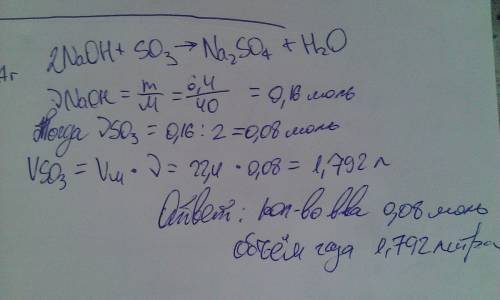 2NaOH + SO3 → Na2SO4 + H2O
νNaOH = m/M = 6,4/40 = 0,16 моль
Тогда νSO3 = 0,16 : 2 = 0,08 моль
VSO3 = Vм · ν = 22,4 · 0,08 = 1,792 л
Ответ: кол-во в-ва 0,08 моль
объём газа 1,792 литра